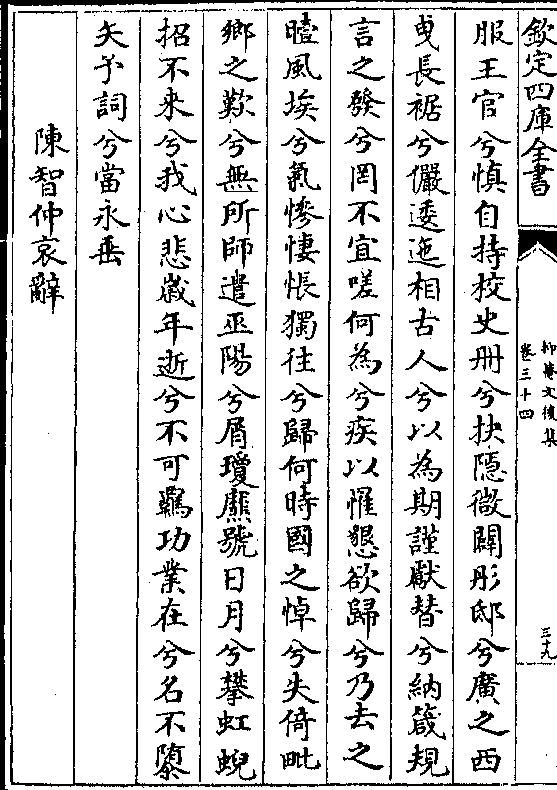 欽定四庫全書
抑菴文後集
卷三十四
三十九
服王官兮慎自持校史册兮抉隱微闢彤邸兮廣之西
曵長裾兮儼逶迤相古人兮以為期謹獻替兮納箴規
言之發兮罔不宜嗟何為兮疾以惟懇欲歸兮乃去之
曀風埃兮氣慘悽悵獨往兮歸何時國之悼兮失倚毗
鄉之歎兮無所師遣巫陽兮屑瓊靡號日月兮攀虹蜺
招不来兮我心悲嵗年逝兮不可羈功業在兮名不隳
矢予詞兮當永垂
陳智仲哀辭